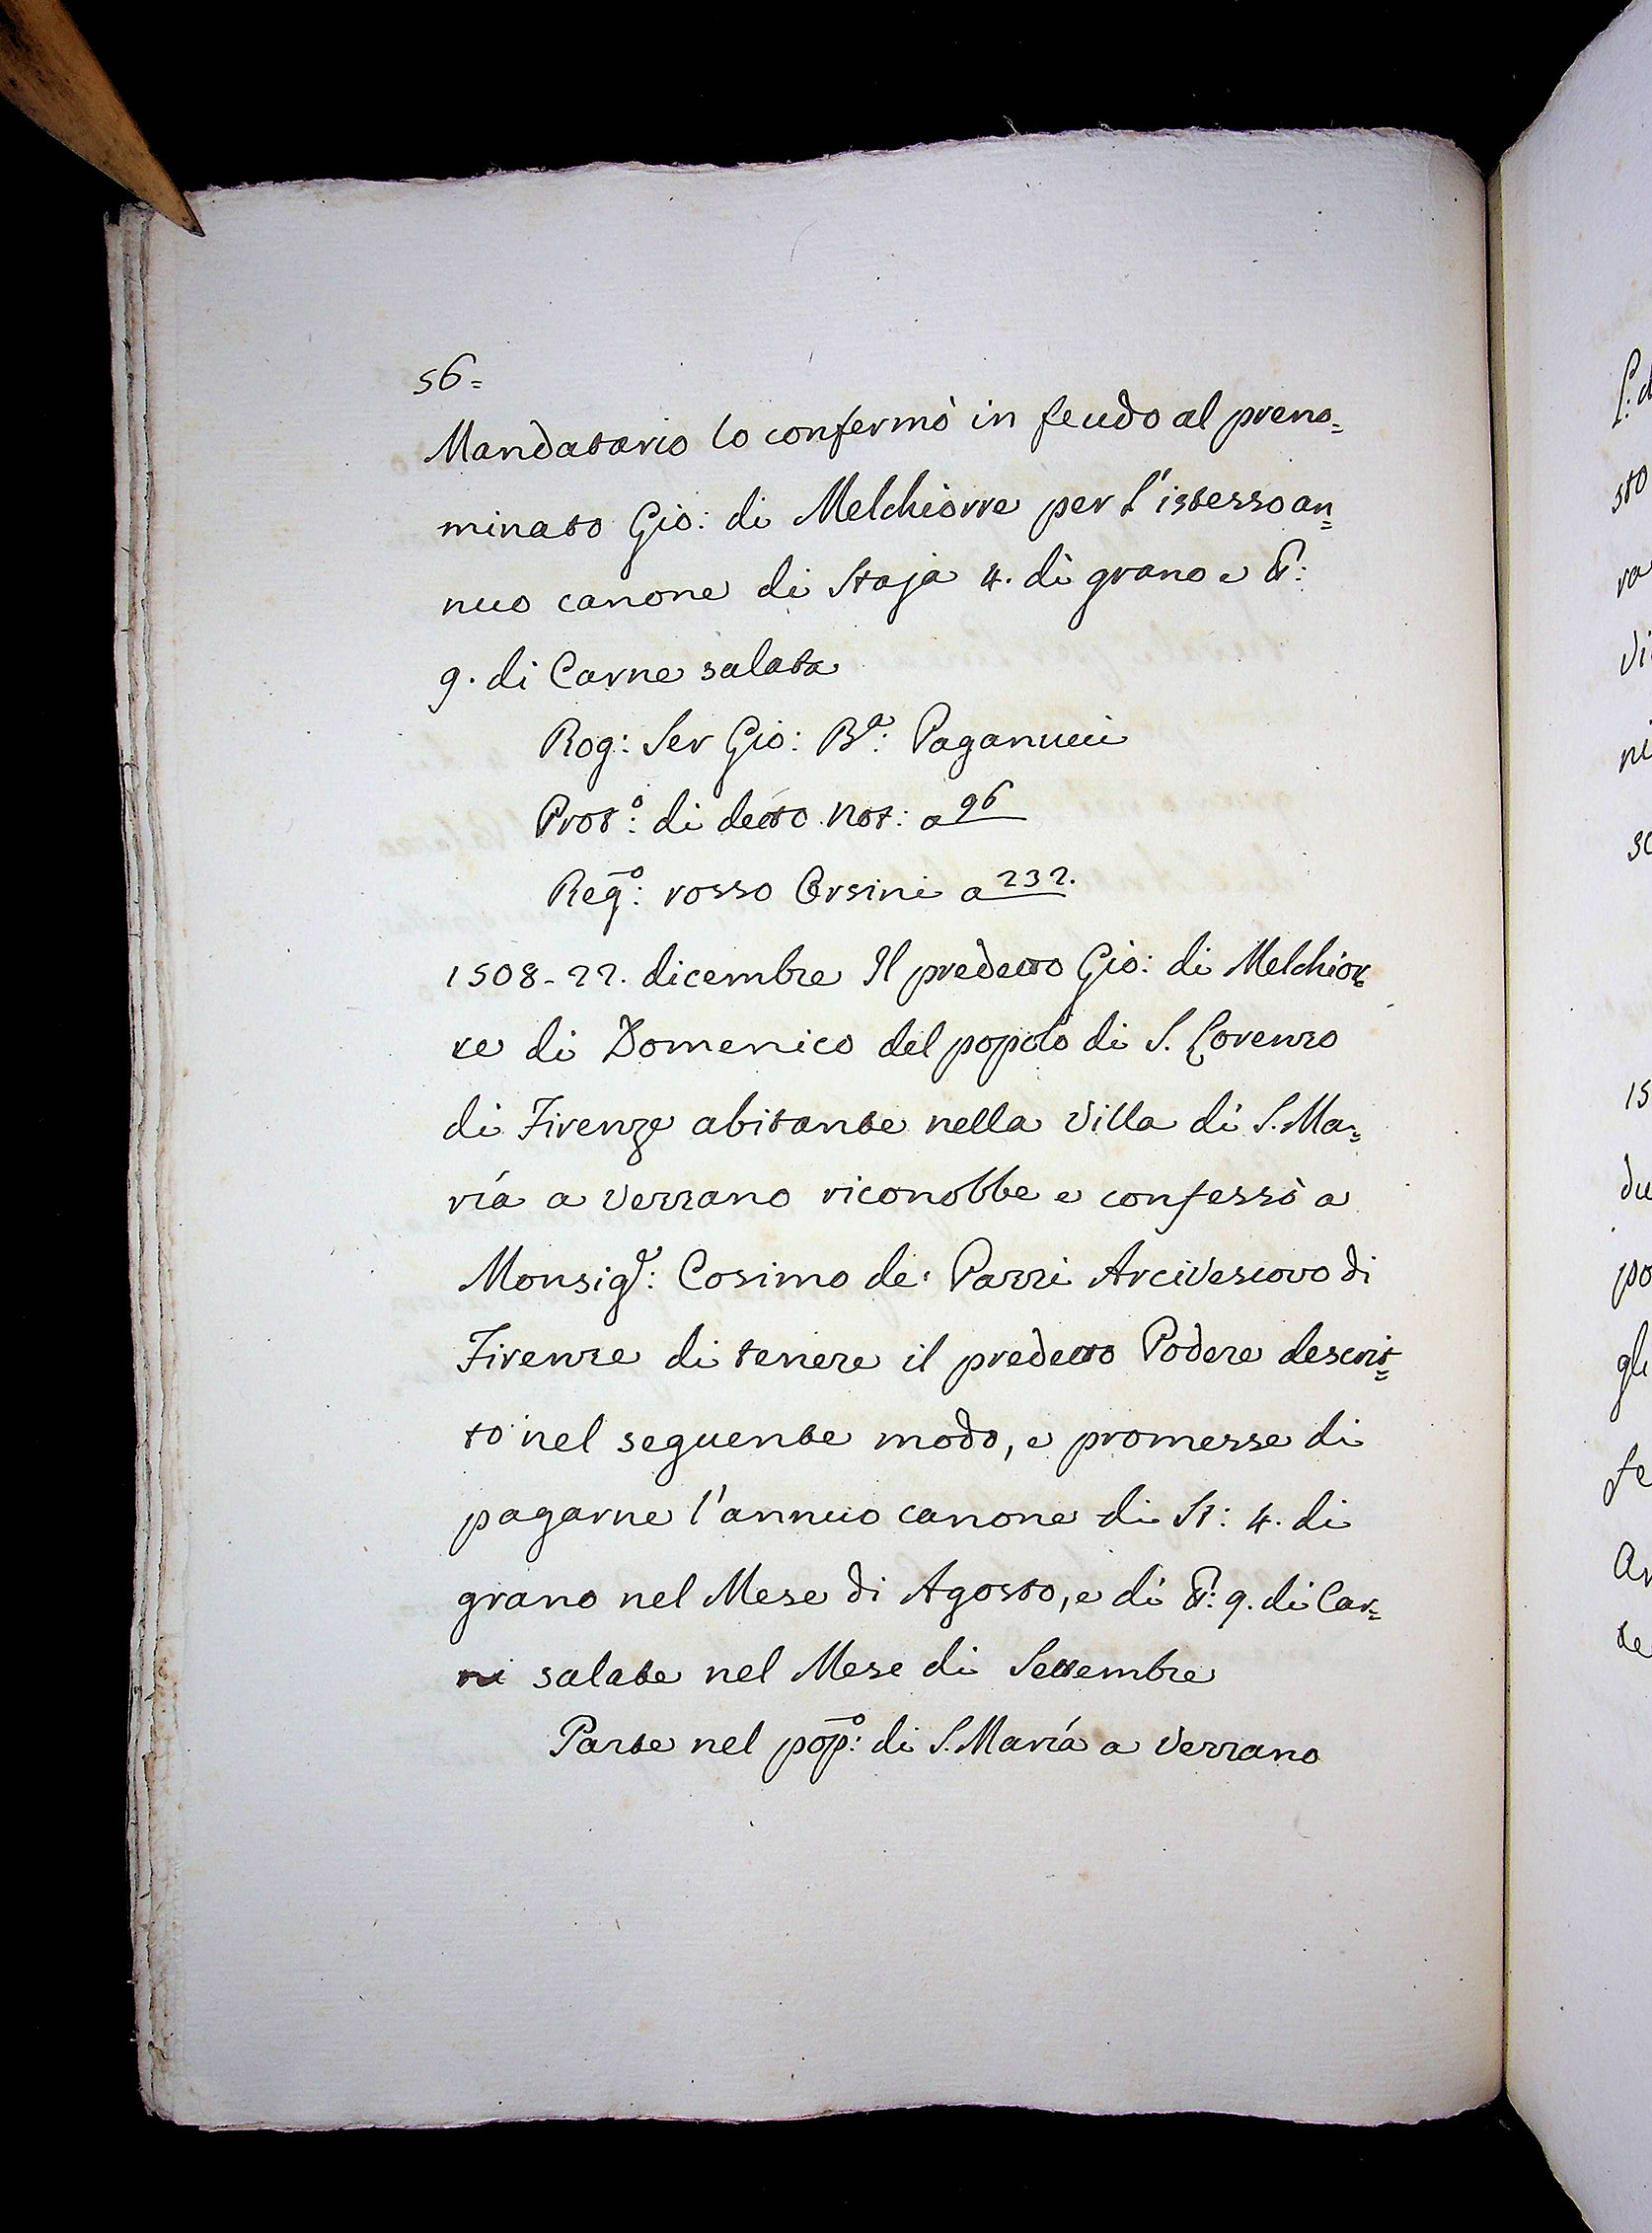 56=
Mandatario lo confermò in feudo al preno=
minato Gio: di Melchiorre per l'istesso an=
nuo canone di Staja 4. di grano e
9. di Carne salata
Rog: Ser Gio: Bᵃ: Paganucci
Protº: di detto Not: a 96
Regº: rosso Orsini a 232.
1508-22. dicembre Il predetto Gio: di Melchior=
re di Domenico del popolo di S. Lorenzo
di Firenze abitante nella Villa di S. Ma=
ría a Verzano riconobbe e confessò a
Monsigʳ: Cosimo de' Pazzi Arcivescovo di
Firenze di tenere il predetto Podere descrit=
to nel seguente modo, e promesse di
pagarne l'annuo canone di St: 4. di
grano nel Mese di Agosto, e di 9. di Car=
ni salate nel Mese di Settembre
Parte nel popº: di S. María a Verzano
sto
ra
di
ni
15
du
po
gli
fe
te